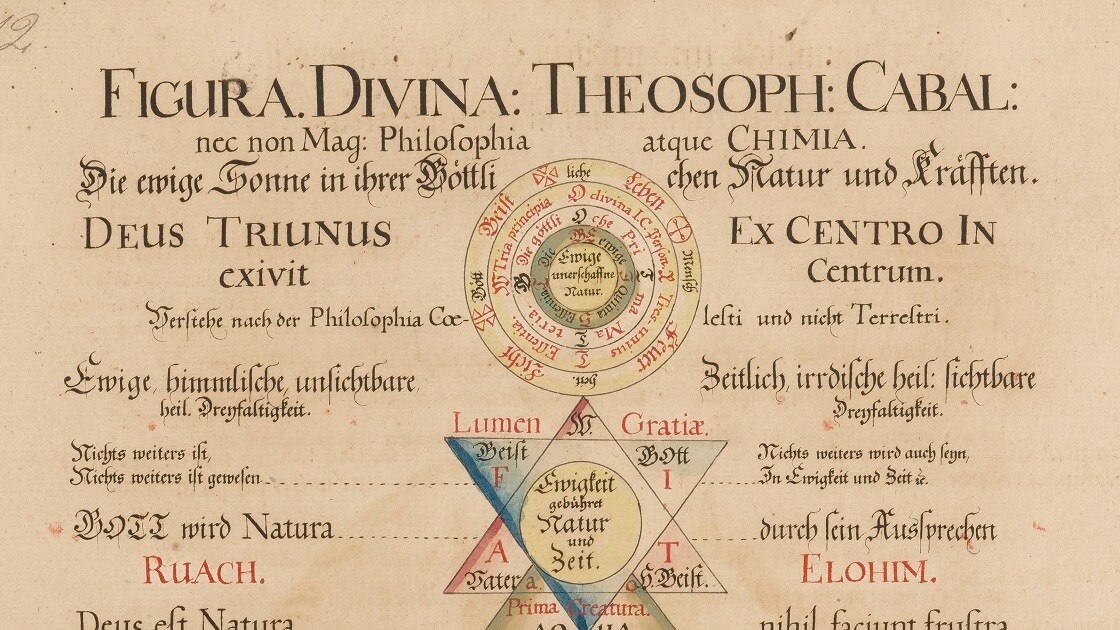 12.
FIGURA. DIVINA: THEOSOPH: CABAL:
nec non Mag: Philosophia atque CHIMIA.
Die ewige Sonne in ihrer Göttli chen Natur und Kräfften.
DEUS TRIUNUS EX CENTRO IN
exivit Centrum.
Verstehe nach der Philosophia Coe- lesti und nicht Terrestri.
Gött liche n Mensch hen.
Geist Leben Feuer Licht
Tria principia divina I.C. Person. Tres unius Essentia.
Die göttli che Pri ma Ma teria.
Die ewige Quinta Essentia.
Ewige
unerschaffne
Natur.
Ewige, himmlische, unsichtbare, Zeitlich, irrdische heil: sichtbare
heil. Dreyfaltigkeit. Dreyfaltigkeit.
Lumen W. Gratiæ.
Nichts weiters ist, Geist GOtt Nichts weiters wird auch seyn,
Nichts weiters ist gewesen F I In Ewigkeit und Zeit ꝛc.
Ewigkeit
gebühret
Natur
und
Zeit.
GOTT wird Natura durch sein Aussprechen
RUACH. A T ELOHIM.
Vater a. o H. Geist.
Prima Creatura.
Deus est Natura nihil faciunt frustra
AQUA